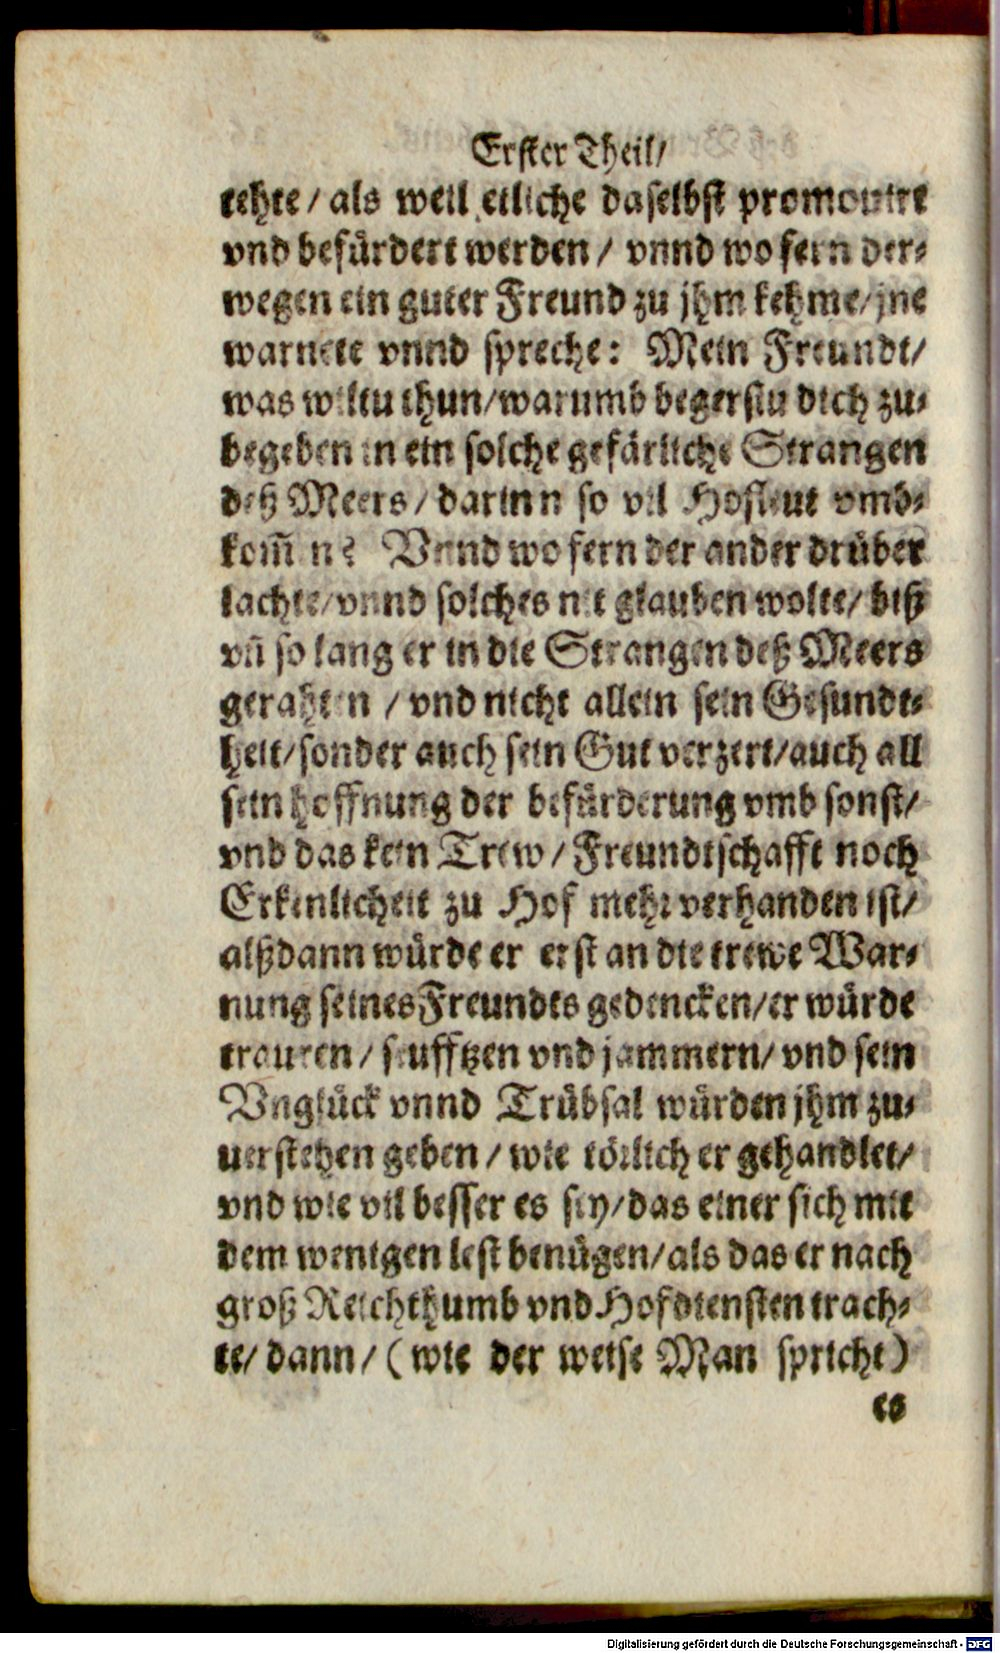 Erster Theil/
tehte/ als weil etliche daselbst promouirt
vnd befürdert werden/ vnnd wo fern der-
wegen ein guter Freund zu jhm kehme/ jne
warnete vnnd spreche: Mein Freundt/
was wiltu thun/ warumb begerstu dich zu-
begeben in ein solche gefärliche Strangen
deß Meers/ darinn so vil Hofleut vmb-
kom̃en? Vnnd wo fern der ander drüber
lachte/ vnnd solches nit glauben wolte/ biß
vn̄ so lang er in die Strangen deß Meers
gerahten/ vnd nicht allein sein Gesundt-
heit/ sonder auch sein Gut verzert/ auch all
sein hoffnung der befürderung vmb sonst/
vnd das kein Trew/ Freundtschafft noch
Erkenlicheit zu Hof mehr verhanden ist/
alßdann würde er erst an die trewe War-
nung seines Freundts gedencken/ er würde
trauren/ seufftzen vnd jammern/ vnd sein
Vnglück vnnd Trübsal würden jhm zu-
uerstehen geben/ wie törlich er gehandlet/
vnd wie vil besser es sey/ das einer sich mit
dem wenigen lest benügen/ als das er nach
groß Reichthumb vnd Hofdiensten trach-
te/ dann/ (wie der weise Man spricht)
es
Digitalisierung gefördert durch die Deutsche Forschungsgemeinschaft - DFG